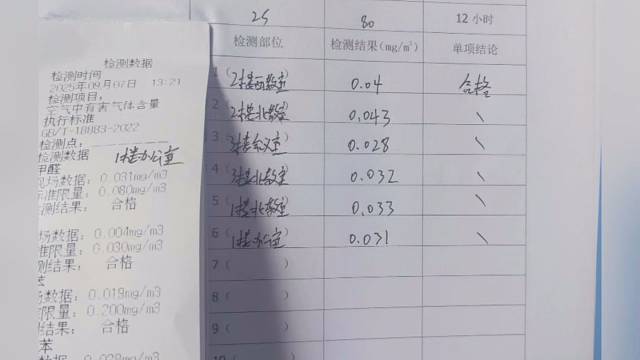 检测数据
检测时间
2025年09月07日 13:21
检测项目:
空气中有害气体含量
执行标准
GB/T-18883-2022
检测点:
检测数据 1楼办公室
甲醛
现场数据: 0.031mg/m3
标准限量: 0.080mg/m3
检测结果: 合格
场数据: 0.004mg/m3
准限量: 0.030mg/m3
测结果: 合格
场数据: 0.019mg/m3
限量: 0.200mg/m3
结果: 合格
苯
数据: 0.028mg/m3
25 80 12小时
检测部位 检测结果(mg/m³) 单项结论
1(2楼西教室) 0.04 合格
2(2楼北教室) 0.043 \
3(3楼会议室) 0.028
4(3楼北教室) 0.032 \
5(1楼北教室) 0.033 \
6(1楼办公室) 0.031 \
7( )
8( )
9( )